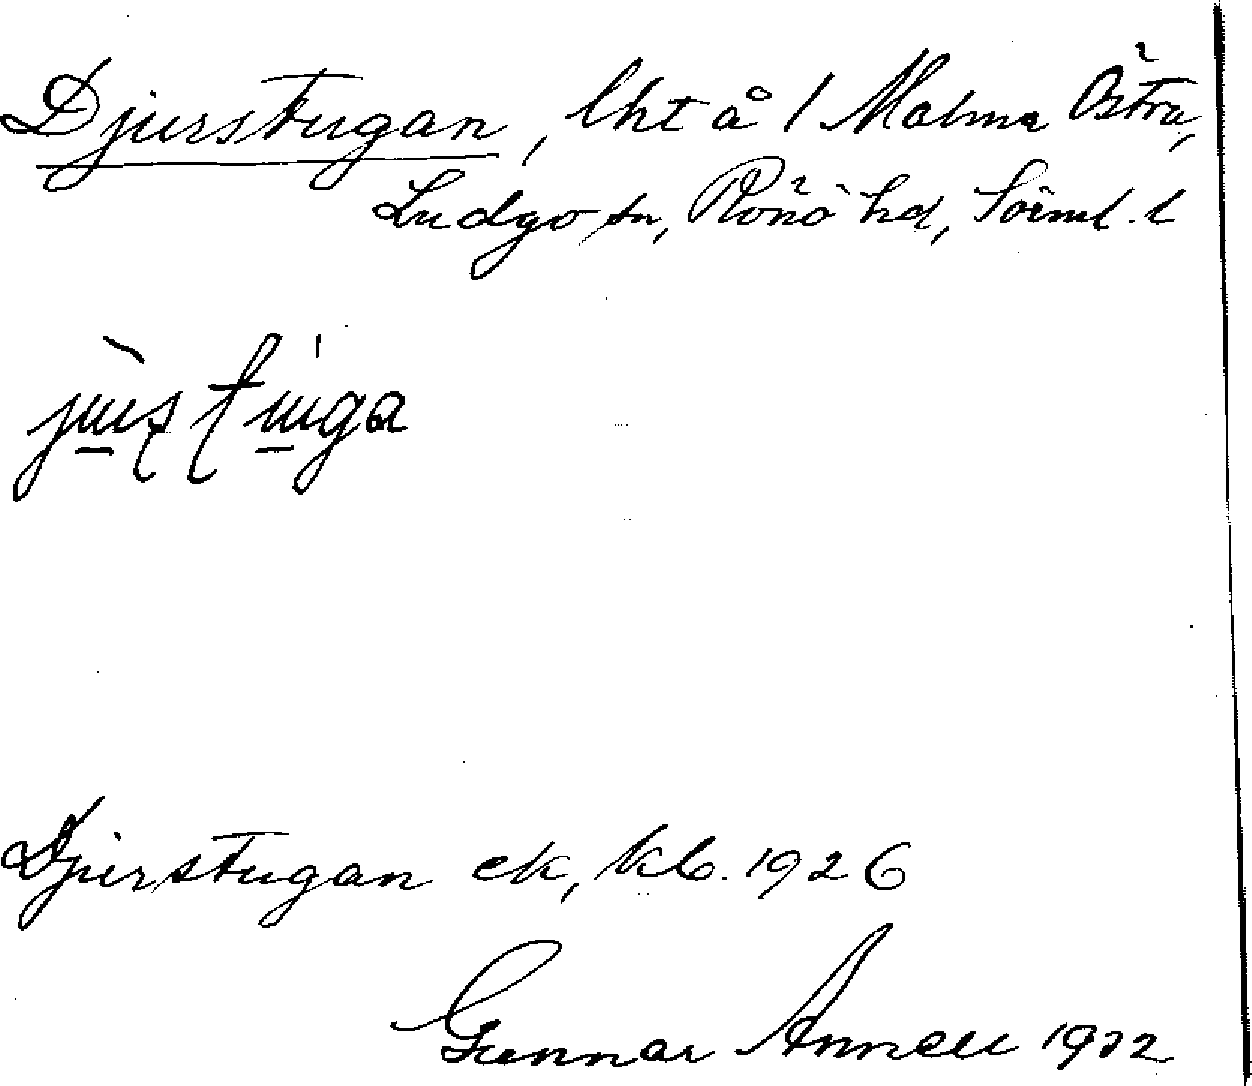 Djurstugan, lht å 1 Malma Östra,
Ludgo sn, Rönö hd, Söderml. l
Djurstugan ek, kb. 1926
Gunnar Annell 1932